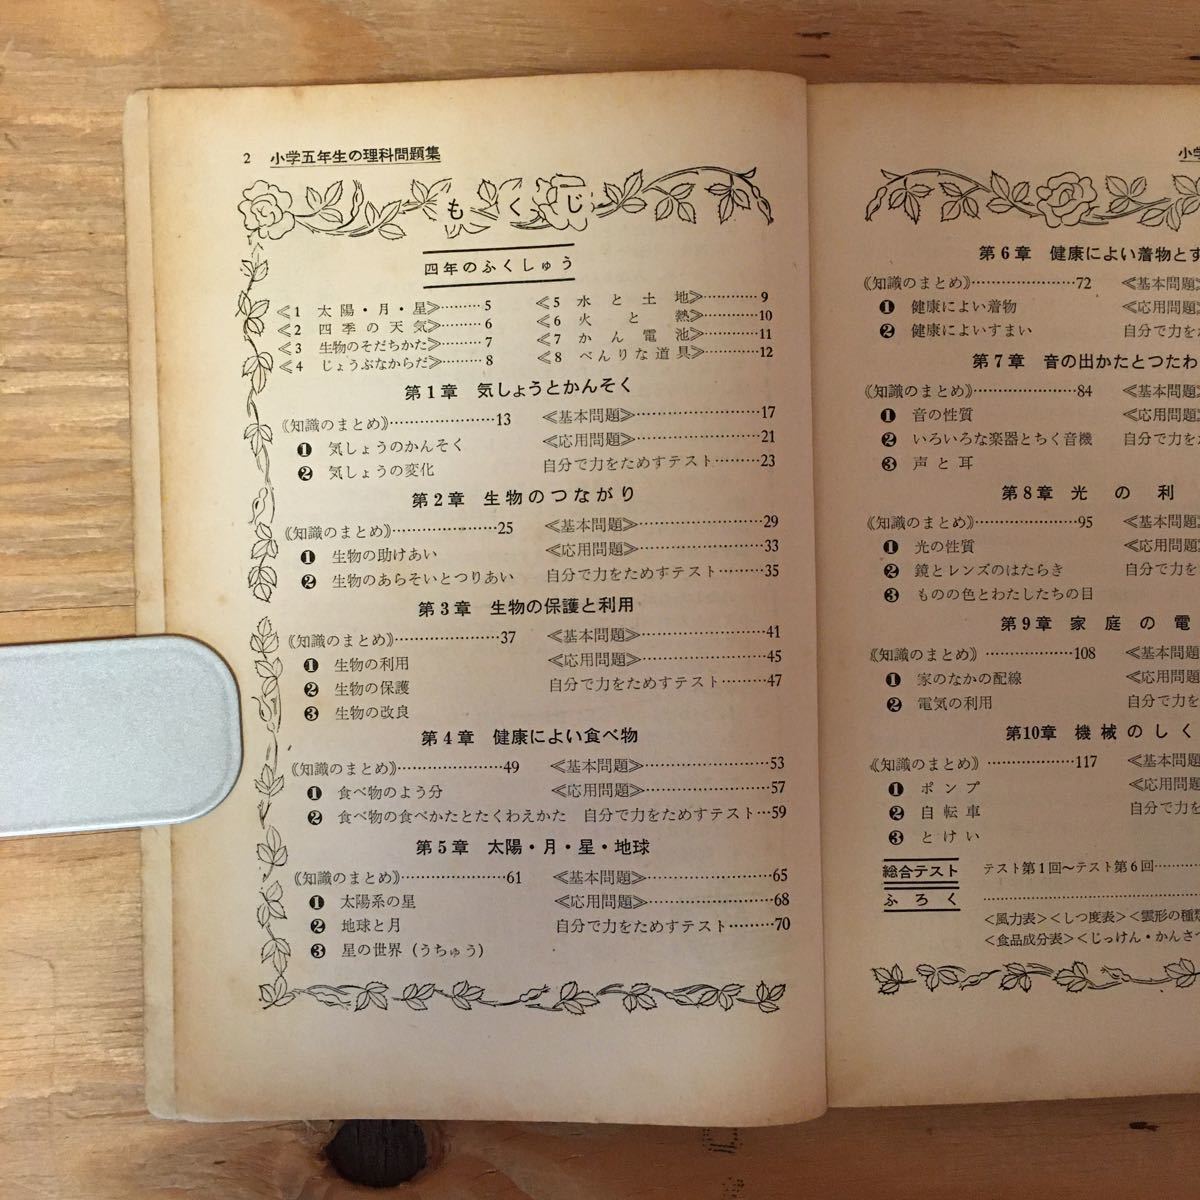 2 小学五年生の理科問題集
もくじ
四年のふくしゅう
≪1 太陽・月・星≫………5
≪2 四季の天気≫………6
≪3 生物のそだちかた≫………7
≪4 じょうぶなからだ≫………8
≪5 水と土地≫………9
≪6 火と熱≫………10
≪7 かん電池≫………11
≪8 べんりな道具≫………12
第1章 気しょうとかんそく
《知識のまとめ》………………13
❶ 気しょうのかんそく
❷ 気しょうの変化
≪基本問題≫………………17
≪応用問題≫………………21
自分で力をためすテスト………23
第2章 生物のつながり
《知識のまとめ》………………25
❶ 生物の助けあい
❷ 生物のあらそいとつりあい
≪基本問題≫………………29
≪応用問題≫………………33
自分で力をためすテスト………35
第3章 生物の保護と利用
《知識のまとめ》………………37
❶ 生物の利用
❷ 生物の保護
❸ 生物の改良
≪基本問題≫………………41
≪応用問題≫………………45
自分で力をためすテスト………47
第4章 健康によい食べ物
《知識のまとめ》………………49
❶ 食べ物のよう分
❷ 食べ物の食べかたとたくわえかた
≪基本問題≫………………53
≪応用問題≫………………57
自分で力をためすテスト…59
第5章 太陽・月・星・地球
《知識のまとめ》………………61
❶ 太陽系の星
❷ 地球と月
❸ 星の世界(うちゅう)
≪基本問題≫………………65
≪応用問題≫………………68
自分で力をためすテスト………70
小学
第6章 健康によい着物とす
《知識のまとめ》………………72
❶ 健康によい着物
❷ 健康によいすまい
≪基本問題
≪応用問題
自分で力を
第7章 音の出かたとつたわ
《知識のまとめ》………………84
❶ 音の性質
❷ いろいろな楽器とちく音機
❸ 声と耳
≪基本問題
≪応用問題
自分で力を
第8章 光の利
《知識のまとめ》………………95
❶ 光の性質
❷ 鏡とレンズのはたらき
❸ ものの色とわたしたちの目
≪基本問題
≪応用問題
自分で力を
第9章 家庭の電
《知識のまとめ》……………108
❶ 家のなかの配線
❷ 電気の利用
≪基本問題
≪応用問題
自分で力を
第10章 機械のしく
《知識のまとめ》……………117
❶ ポンプ
❷ 自転車
❸ とけい
≪基本問題
≪応用問題
自分で力を
総合テスト テスト第1回～テスト第6回……
ふろく………………
<風力表><しつ度表><雲形の種類
<食品成分表><じっけん・かんさつ